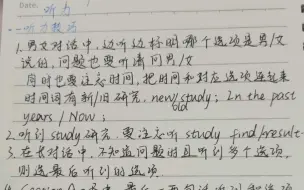 Date.
听力
一. 听力技巧
1. 男女对话中，边听边标明哪个选项是男/女
说的，问题也要听清问男/女
同时也要注意时间，把时间和对应选项连起来
时间词有新/旧研究，new/old study；In the past
years / Now；
2. 听到study研究，要注意听 study find/result
3. 在长对话中，不知道问题时且听到多个选项，
则选最后听到的选项.